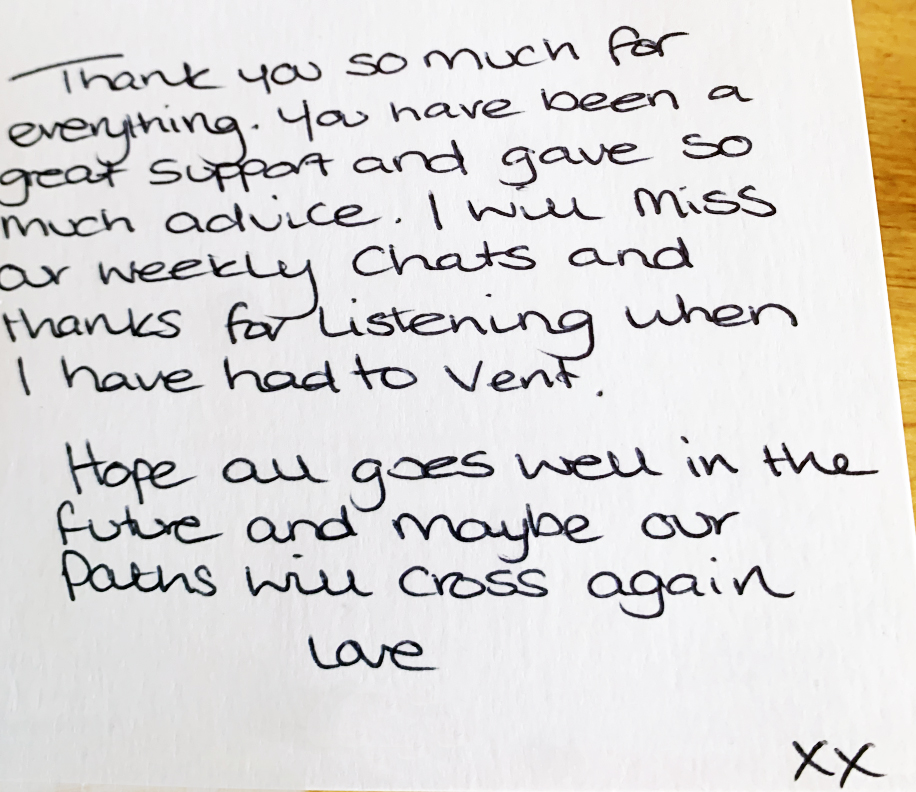 Thank you so much for
everything. You have been a
great support and gave so
much advice. I will miss
our weekly chats and
thanks for listening when
I have had to vent.
Hope all goes well in the
future and maybe our
paths will cross again
Love
xx